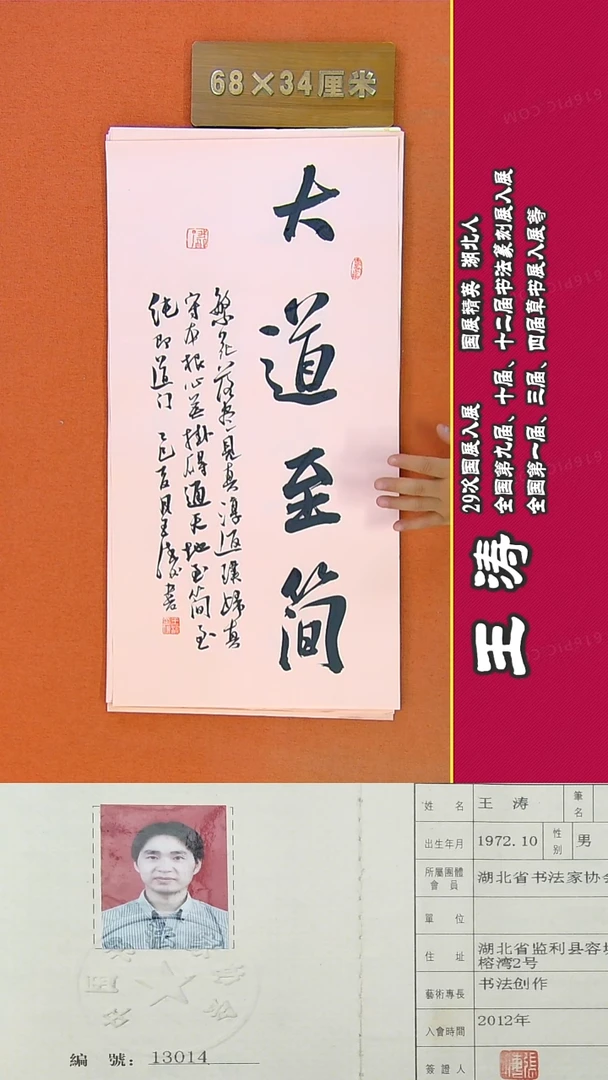 68×34厘米
大道至简
繁花落尽见真淳返璞归真
守本根心无挂碍通天地至简至
纯即道门 乙巳百月王涛书
王涛
29次国展入展 国展精英 湖北人
全国第九届、十届、十二届书法篆刻展入展
全国第一届、三届、四届草书展入展等
姓 名 王 涛 筆名
出生年月 1972.10 性别 男
所屬團體會員 湖北省书法家协会
單 位
住 址 湖北省监利县容城
榕湾2号
藝術專長 书法创作
入會時間 2012年
簽證人
編 號: 13014